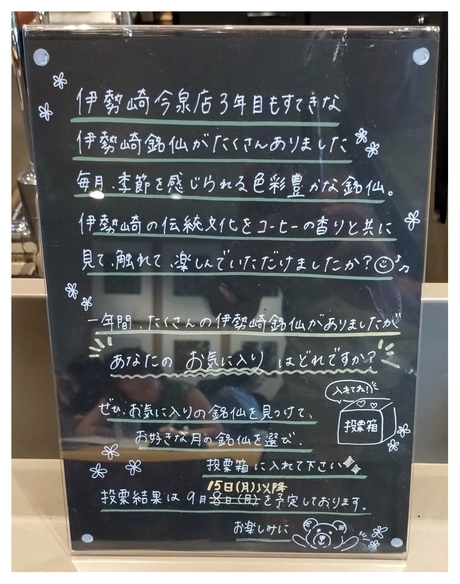 伊勢崎今泉店3年目もすてきな
伊勢崎銘仙がたくさんありました
毎月、季節を感じられる色彩豊かな銘仙。
伊勢崎の伝統文化をコーヒーの香りと共に
見て、触れて、楽しんでいただけましたか?
一年間、たくさんの伊勢崎銘仙がありましたが
あなたの お気に入り はどれですか?
入れてね!
投票箱
ぜひ、お気に入りの銘仙を見つけて、
お好きな月の銘仙を選び、
投票箱に入れて下さい
15日(月)以降
投票結果は9月8日(月)を予定しております。
お楽しみに